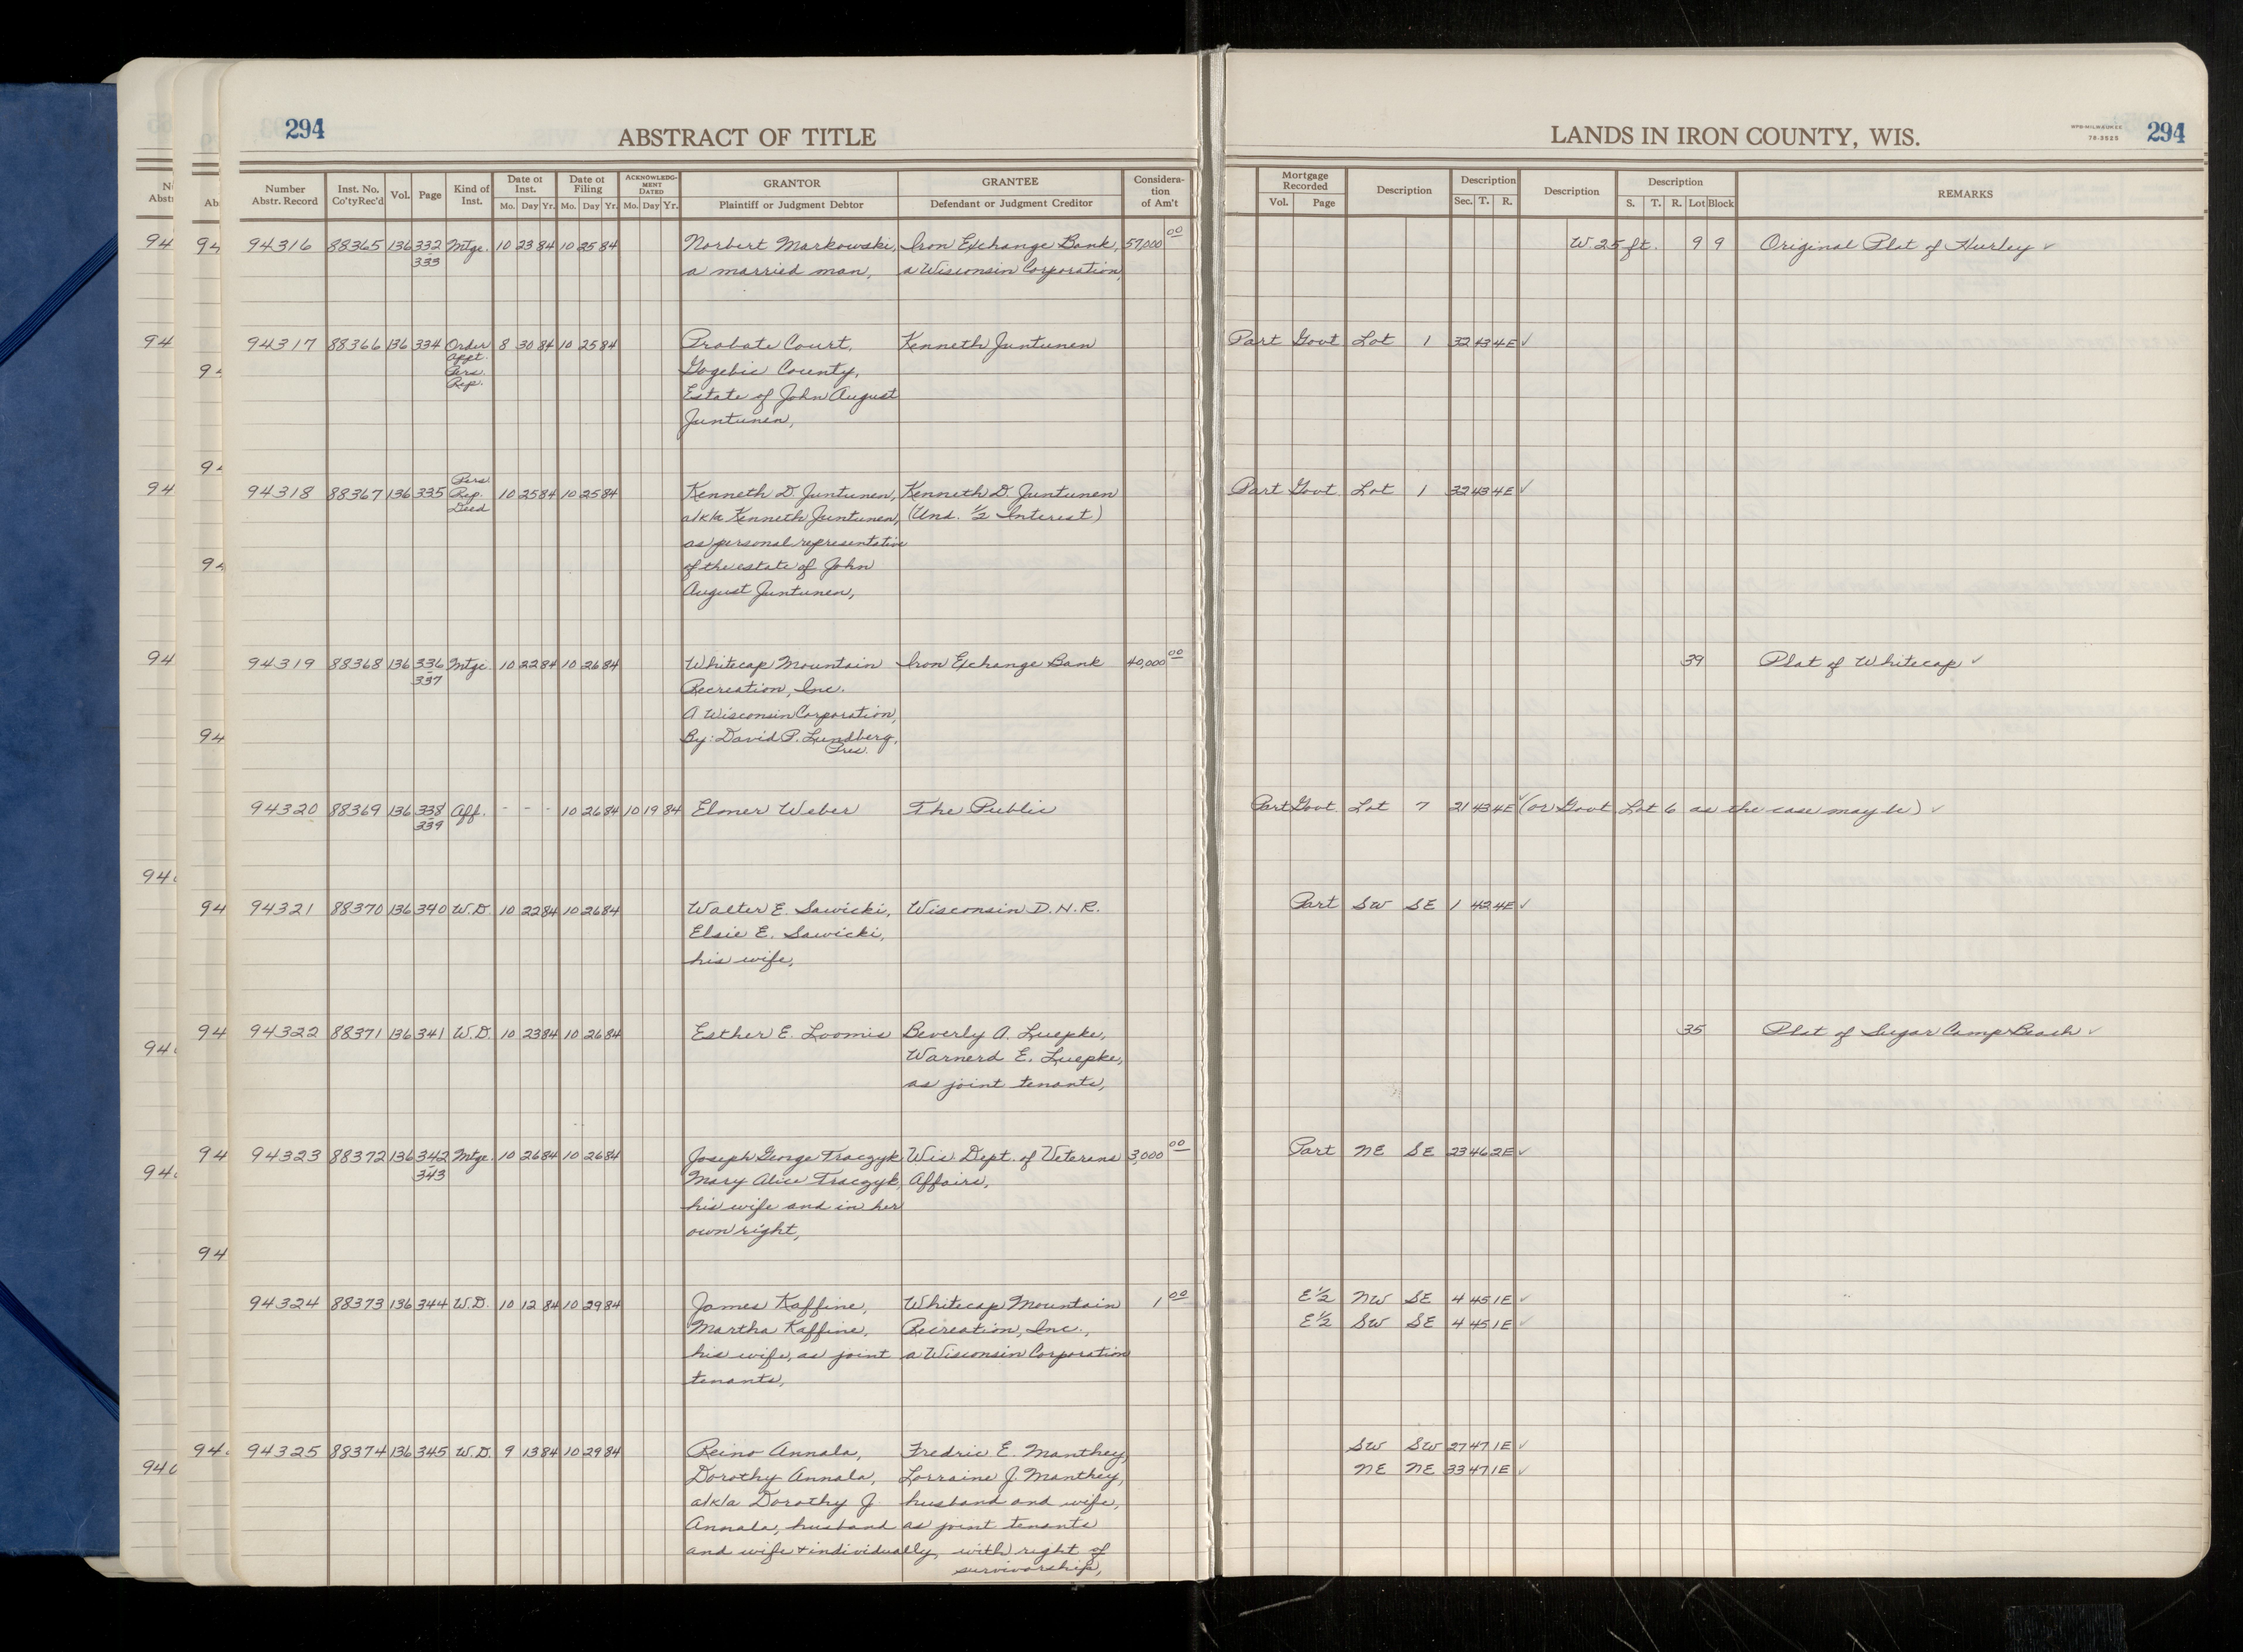 294
ABSTRACT OF TITLE
LANDS IN IRON COUNTY, WIS.
WPB-MILWAUKEE
78-3525
294
Number Abstr. Record | Inst. No. Co'ty Rec'd | Vol. | Page | Kind of Inst. | Date of Inst. Mo. Day Yr. | Date of Filing Mo. Day Yr. | ACKNOWLEDGMENT DATED Mo. Day Yr. | GRANTOR Plaintiff or Judgment Debtor | GRANTEE Defendant or Judgment Creditor | Consideration of Am't | Mortgage Recorded Vol. Page | Description | Description Sec. T. R. | Description | Description S. T. R. Lot Block | REMARKS
94316 88365 136 332 Mtge. 10 23 84 10 25 84 Norbert Markowski, Iron Exchange Bank, 57,000 00 W. 25 ft. 9 9 Original Plat of Hurley ✓
333 a married man, a Wisconsin Corporation,
94317 88366 136 334 Order 8 30 84 10 25 84 Probate Court, Kenneth Juntunen Part Govt Lot 1 32 43 4E ✓
Appt.
Pers. Gogebic County,
Rep. Estate of John August
Juntunen,
Pers.
94318 88367 136 335 Rep. 10 25 84 10 25 84 Kenneth D. Juntunen, Kenneth D. Juntunen Part Govt. Lot 1 32 43 4E ✓
Deed a/k/a Kenneth Juntunen, (Und. 1/2 Interest)
as personal representative
of the estate of John
August Juntunen,
94319 88368 136 336 Mtge. 10 22 84 10 26 84 Whitecap Mountain Iron Exchange Bank 40,000 00 39 Plat of Whitecap ✓
337 Recreation, Inc.
A Wisconsin Corporation,
By: David P. Lundberg,
Pres.
94320 88369 136 338 Aff. - - - 10 26 84 10 19 84 Elmer Weber The Public Part Govt. Lot 7 21 43 4E ✓ (or Govt Lot 6 as the case may be) ✓
339
94321 88370 136 340 W.D. 10 22 84 10 26 84 Walter E. Sawicki, Wisconsin D.N.R. Part SW SE 1 42 4E ✓
Elsie E. Sawicki,
his wife,
94322 88371 136 341 W.D. 10 23 84 10 26 84 Esther E. Loomis Beverly A. Luepke, 35 Plat of Sugar Camp Beach ✓
Warnerd E. Luepke,
as joint tenants,
94323 88372 136 342 Mtge. 10 26 84 10 26 84 Joseph George Traczyk Wis. Dept. of Veterans 3,000 00 Part NE SE 23 46 2E ✓
343 Mary Alice Traczyk, Affairs,
his wife and in her
own right,
94324 88373 136 344 W.D. 10 12 84 10 29 84 James Kaffine, Whitecap Mountain 1 00 E 1/2 NW SE 4 45 1E ✓
Martha Kaffine, Recreation, Inc., E 1/2 SW SE 4 45 1E ✓
his wife, as joint a Wisconsin Corporation
tenants,
94325 88374 136 345 W.D. 9 13 84 10 29 84 Reino Annala, Fredric E. Manthey, SW SW 27 47 1E ✓
Dorothy Annala, Lorraine J. Manthey, NE NE 33 47 1E ✓
a/k/a Dorothy J. husband and wife,
Annala, husband as joint tenants
and wife + individually, with right of
survivorship,